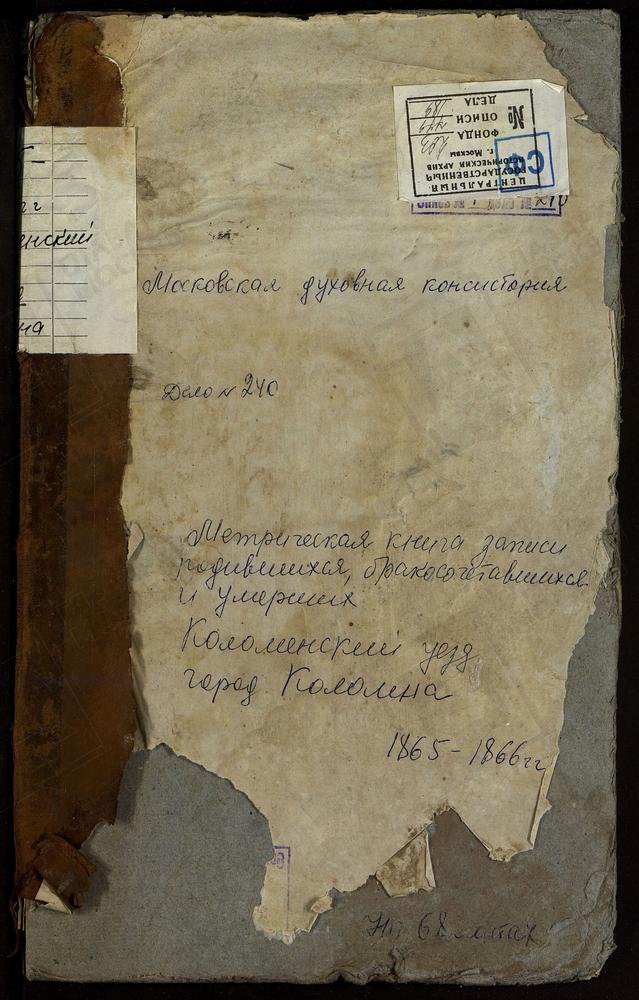 ЦЕНТРАЛЬНЫЙ
ГОСУДАРСТВЕННЫЙ
ИСТОРИЧЕСКИЙ АРХИВ
г. Москвы
ФОНДА 203
№ ОПИСИ
ДЕЛА 189
СФ
енский
на
Московская духовная консистория
Дело N 240
Метрическая книга записи
родившихся, бракосочетавшихся
и умерших
Коломенский уезд,
город Коломна
1865-1866гг
На 68 листах